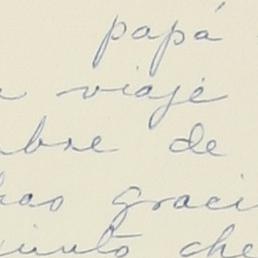 papá
viaje
mbre de
has graci
junto che